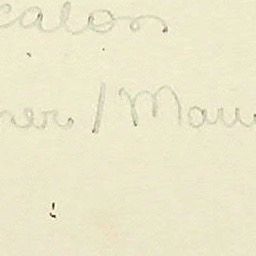 calos
ner / Mau